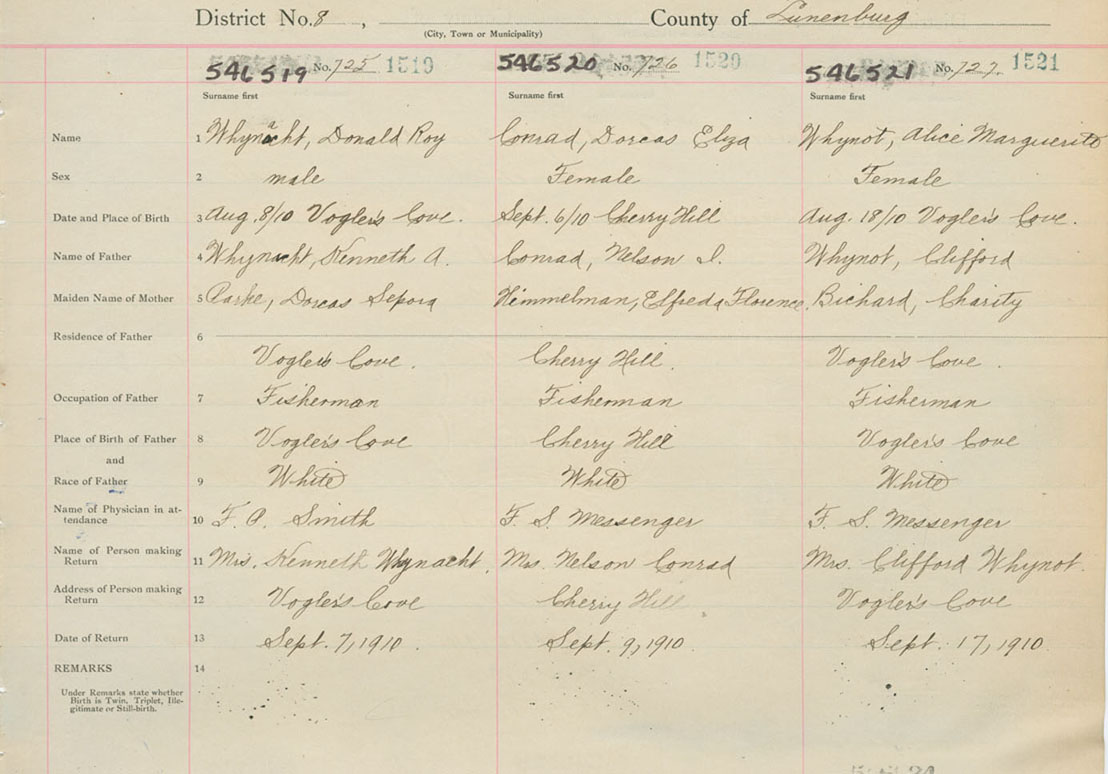 District No. 8 , County of Lunenburg
(City, Town or Municipality)
546519 No. 725 1519 546520 No. 726 1520 546521 No. 727. 1521
Surname first Surname first Surname first
Name 1 Whynacht, Donald Roy Conrad, Dorcas Eliza Whynot, Alice Marguerite
Sex 2 male Female Female
Date and Place of Birth 3 Aug. 8/10 Vogler's Cove. Sept. 6/10 Cherry Hill Aug. 18/10 Vogler's Cove.
Name of Father 4 Whynacht, Kenneth A. Conrad, Nelson I. Whynot, Clifford
Maiden Name of Mother 5 Parke, Dorcas Sepora Himmelman, Elfreda Florence. Bichard, Charity
Residence of Father 6
Vogler's Cove. Cherry Hill. Vogler's Cove.
Occupation of Father 7 Fisherman Fisherman Fisherman
Place of Birth of Father 8 Vogler's Cove Cherry Hill Vogler's Cove
and
Race of Father 9 White White White
Name of Physician in at-
tendance 10 F. P. Smith F. S. Messenger F. S. Messenger
Name of Person making
Return 11 Mrs. Kenneth Whynacht. Mrs. Nelson Conrad Mrs. Clifford Whynot.
Address of Person making
Return 12 Vogler's Cove Cherry Hill Vogler's Cove
Date of Return 13 Sept. 7, 1910. Sept. 9, 1910. Sept. 17, 1910.
REMARKS 14
Under Remarks state whether
Birth is Twin, Triplet, Ille-
gitimate or Still-birth.